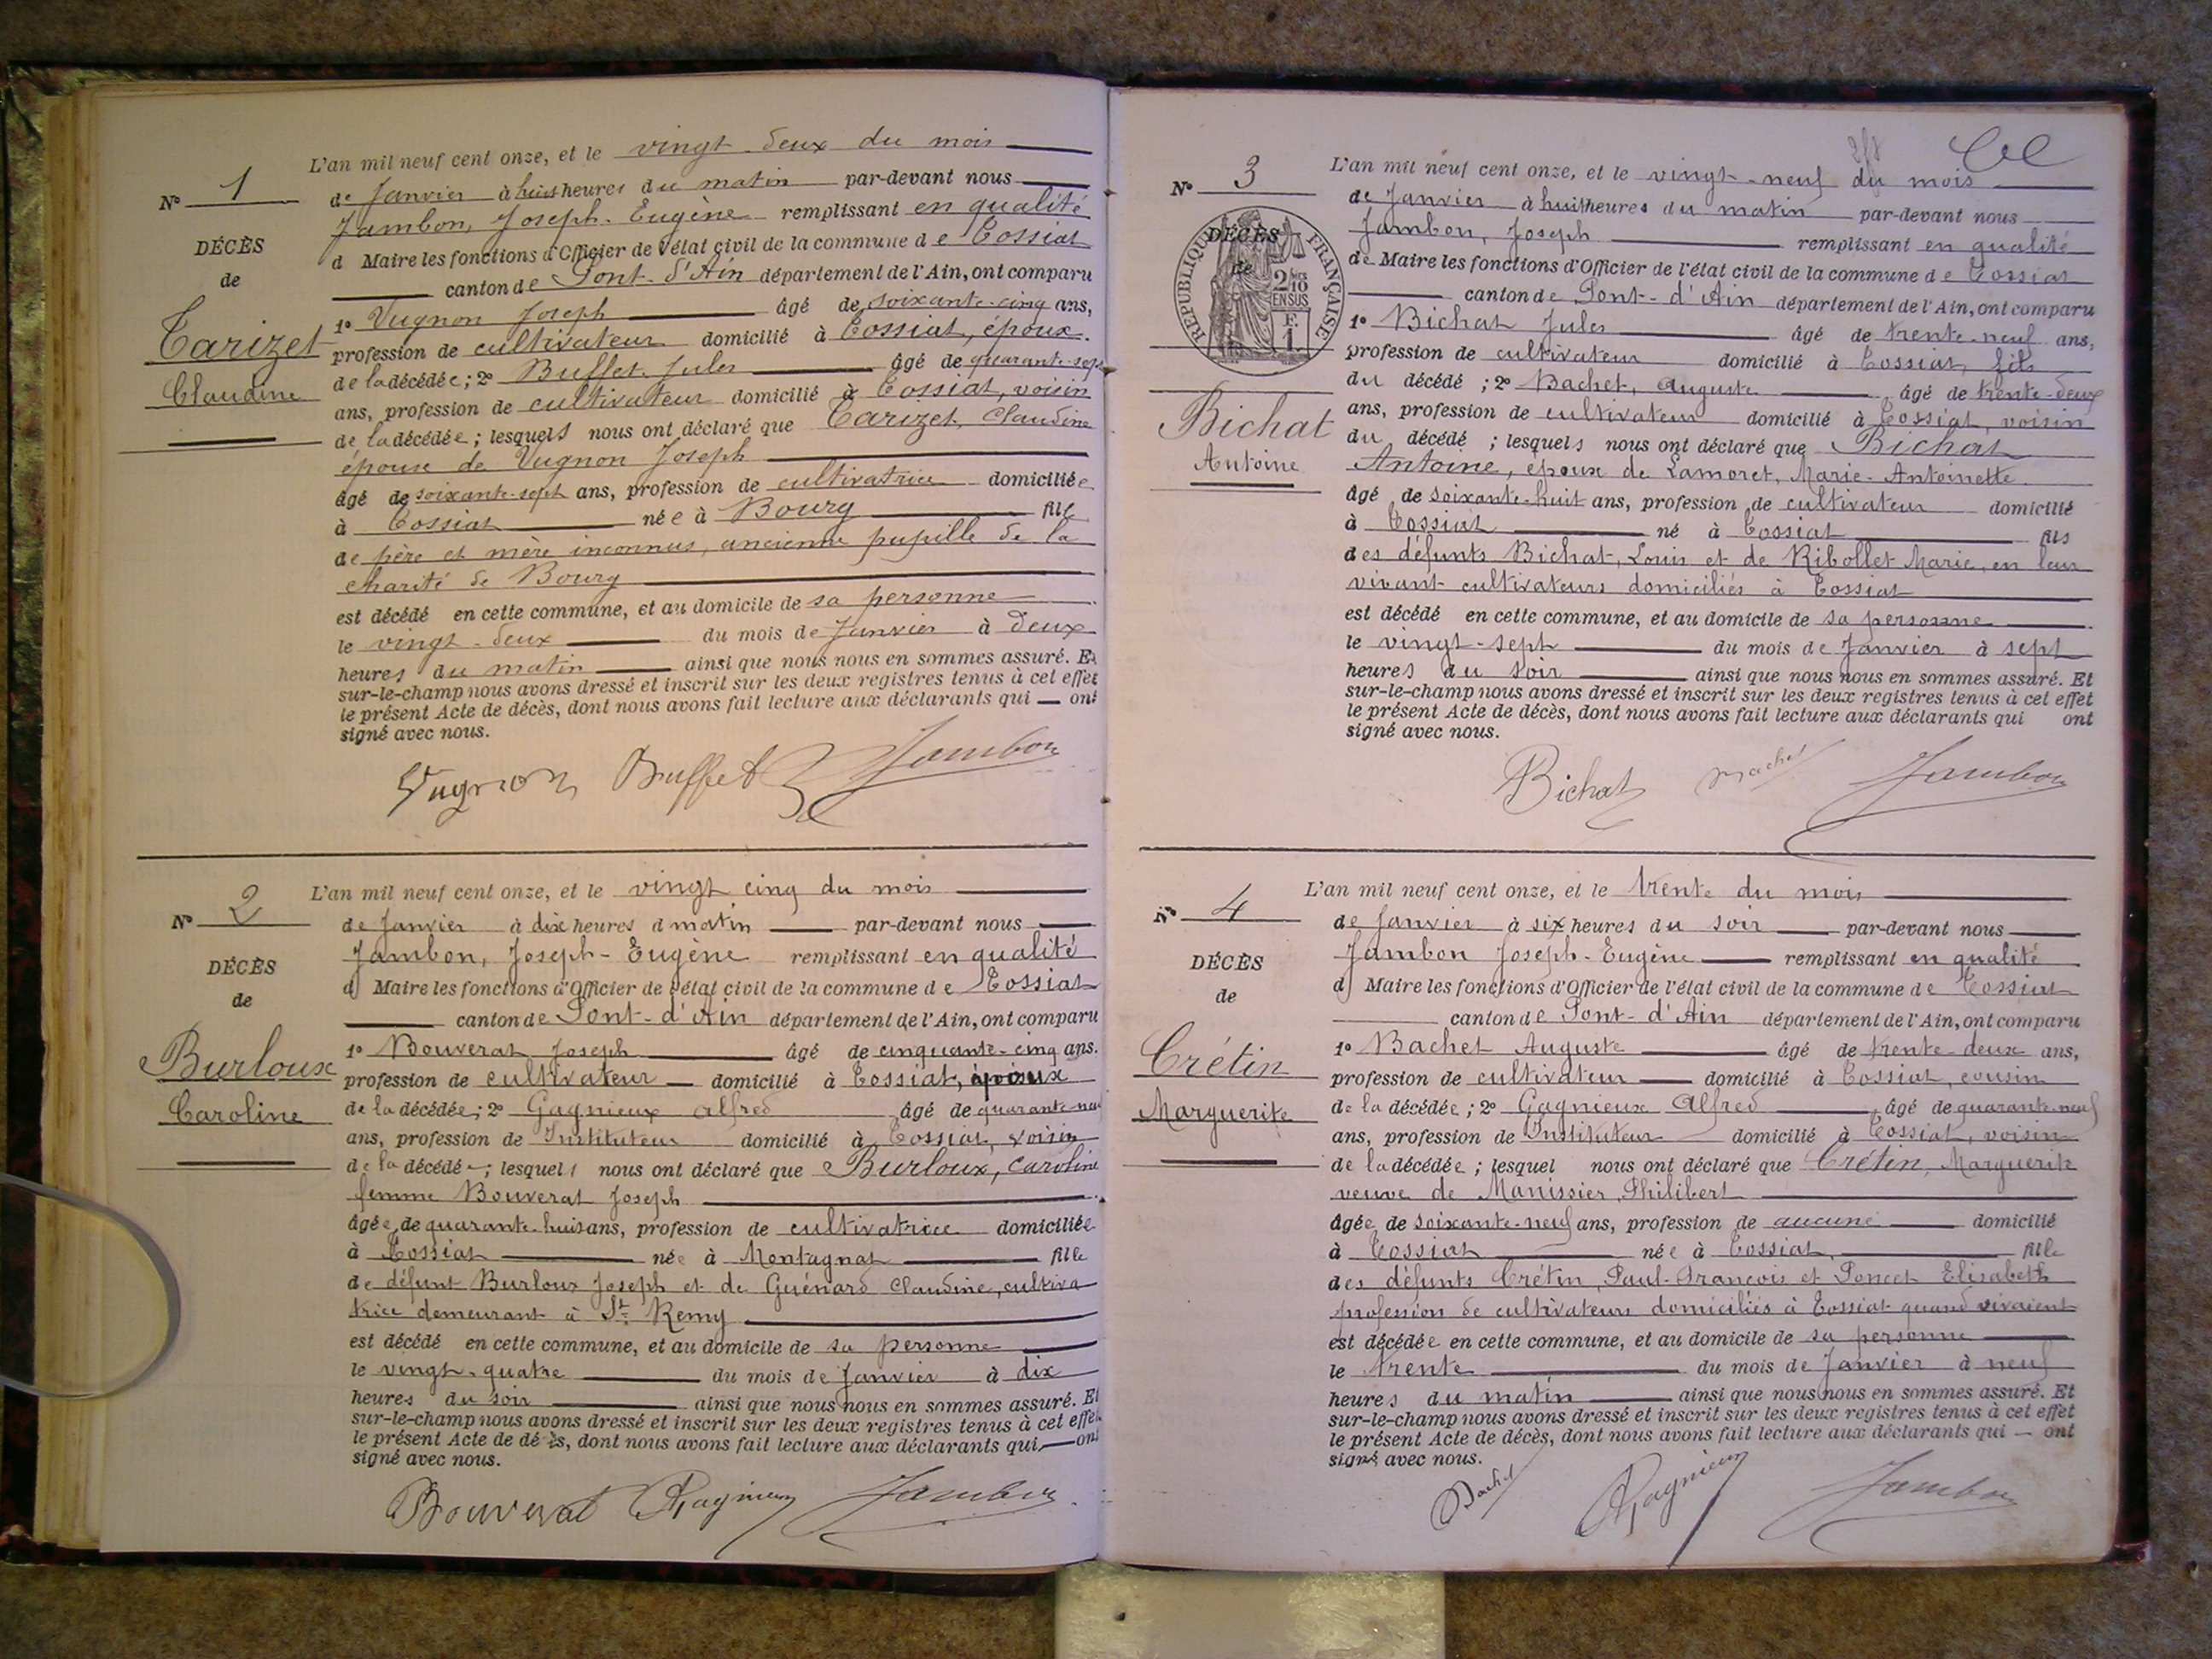 L'an mil neuf cent onze, et le vingt-deux du mois
N° 1
de Janvier à huit heures du matin par-devant nous
Jambon, Joseph-Eugène remplissant en qualité
DÉCÈS
d Maire les fonctions d'Officier de l'état civil de la commune de Tossiat
de
canton de Pont-d'Ain département de l'Ain, ont comparu
1° Vugnon Joseph âgé de soixante-cinq ans,
Tarizet
profession de cultivateur domicilié à Tossiat, époux
Claudine
de la décédée; 2° Buffet Jules âgé de quarante-sept
ans, profession de cultivateur domicilié à Tossiat, voisin
de la décédée; lesquels nous ont déclaré que Tarizet, Claudine
épouse de Vugnon Joseph
âgé de soixante-sept ans, profession de cultivatrice domiciliée
à Tossiat née à Bourg fille
de père et mère inconnus, ancienne pupille de la
charité de Bourg
est décédé en cette commune, et au domicile de sa personne
le vingt-deux du mois de Janvier à deux
heures du matin ainsi que nous nous en sommes assuré. Et
sur-le-champ nous avons dressé et inscrit sur les deux registres tenus à cet effet
le présent Acte de décès, dont nous avons fait lecture aux déclarants qui ont
signé avec nous.
Vugnon Buffet Jambon
L'an mil neuf cent onze, et le vingt cinq du mois
N° 2
de Janvier à dix heures d matin par-devant nous
Jambon, Joseph-Eugène remplissant en qualité
DÉCÈS
d Maire les fonctions d'Officier de l'état civil de la commune de Tossiat
de
canton de Pont-d'Ain département de l'Ain, ont comparu
1° Bouverat Joseph âgé de cinquante-cinq ans.
Burloux
profession de cultivateur domicilié à Tossiat, époux
Caroline
de la décédée; 2° Gagnieux Alfred âgé de quarante-neuf
ans, profession de Instituteur domicilié à Tossiat, voisin
de la décédée; lesquels nous ont déclaré que Burloux, Caroline
femme Bouverat Joseph
âgée de quarante-huit ans, profession de cultivatrice domiciliée
à Tossiat née à Montagnat fille
de défunt Burloux Joseph et de Guénard Claudine, cultiva
trice demeurant à St Remy
est décédé en cette commune, et au domicile de sa personne
le vingt-quatre du mois de Janvier à dix
heures du soir ainsi que nous nous en sommes assuré. Et
sur-le-champ nous avons dressé et inscrit sur les deux registres tenus à cet effet
le présent Acte de dé ès, dont nous avons fait lecture aux déclarants qui ont
signé avec nous.
Bouverat Gagnieux Jambon
L'an mil neuf cent onze, et le vingt-neuf du mois
N° 3
de Janvier à huit heures du matin par-devant nous
Jambon, Joseph remplissant en qualité
DÉCÈS
de Maire les fonctions d'Officier de l'état civil de la commune de Tossiat
de
RÉPUBLIQUE FRANÇAISE
2/10 EN SUS
F. 1
canton de Pont-d'Ain département de l'Ain, ont comparu
1° Bichat Jules âgé de trente-neuf ans,
profession de cultivateur domicilié à Tossiat, fils
du décédé; 2° Bachet, Auguste âgé de trente-deux
Bichat
ans, profession de cultivateur domicilié à Tossiat, voisin
du décédé; lesquels nous ont déclaré que Bichat
Antoine
Antoine, époux de Lamoret, Marie-Antoinette
âgé de soixante-huit ans, profession de cultivateur domicilié
à Tossiat né à Tossiat fils
des défunts Bichat, Louis et de Ribollet Marie, en leur
vivant cultivateurs domiciliés à Tossiat
est décédé en cette commune, et au domicile de sa personne
le vingt-sept du mois de Janvier à sept
heures du soir ainsi que nous nous en sommes assuré. Et
sur-le-champ nous avons dressé et inscrit sur les deux registres tenus à cet effet
le présent Acte de décès, dont nous avons fait lecture aux déclarants qui ont
signé avec nous.
Bichat Bachet Jambon
L'an mil neuf cent onze, et le trente du mois
N° 4
de Janvier à six heures du soir par-devant nous
Jambon Joseph-Eugène remplissant en qualité
DÉCÈS
d Maire les fonctions d'Officier de l'état civil de la commune de Tossiat
de
canton de Pont-d'Ain département de l'Ain, ont comparu
1° Bachet Auguste âgé de trente-deux ans,
Crétin
profession de cultivateur domicilié à Tossiat, cousin
Marguerite
de la décédée; 2° Gagnieux Alfred âgé de quarante-neuf
ans, profession de Instituteur domicilié à Tossiat, voisin
de la décédée; lesquel nous ont déclaré que Crétin, Marguerite
veuve de Manissier, Philibert
âgée de soixante-neuf ans, profession de aucune domicilié
à Tossiat née à Tossiat fille
des défunts Crétin, Paul-François et Poncet Elisabeth
profession de cultivateurs domiciliés à Tossiat quand vivaient
est décédée en cette commune, et au domicile de sa personne
le trente du mois de Janvier à neuf
heures du matin ainsi que nous nous en sommes assuré. Et
sur-le-champ nous avons dressé et inscrit sur les deux registres tenus à cet effet
le présent Acte de décès, dont nous avons fait lecture aux déclarants qui ont
signé avec nous.
Bachet Gagnieux Jambon